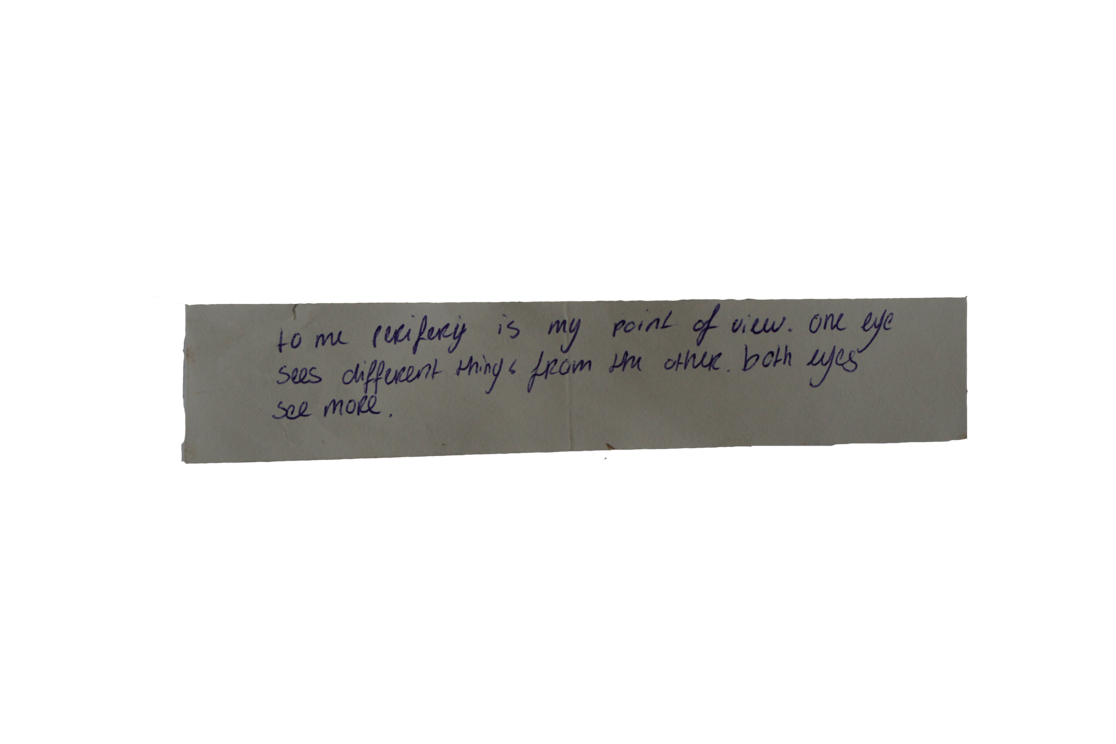 to me periferij is my point of view. one eye
sees different things from the other. both eyes
see more.